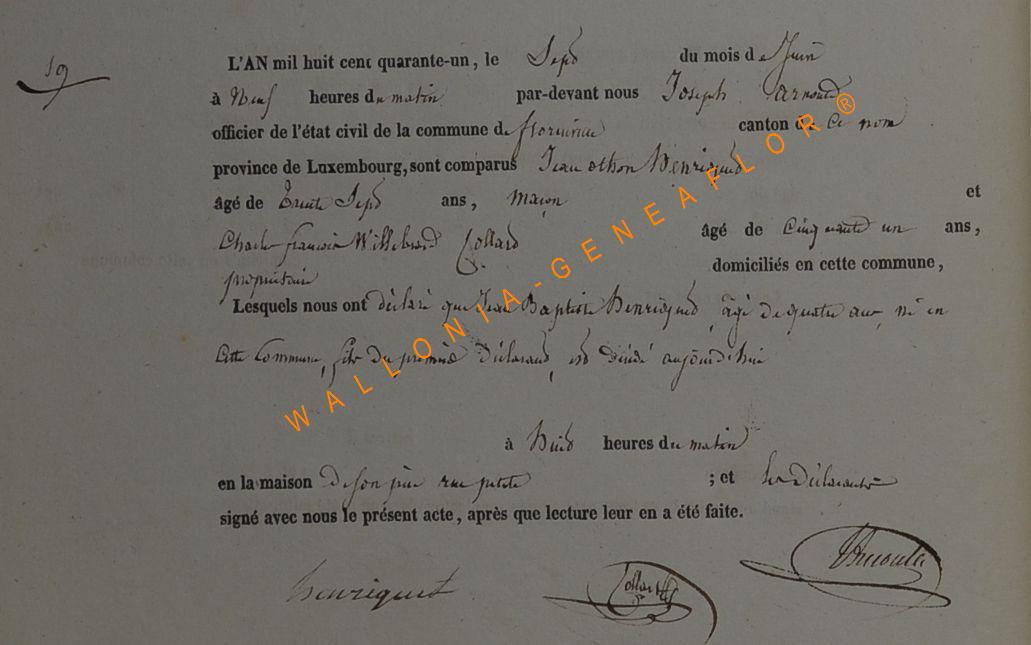 19
L'AN mil huit cent quarante-un, le Sept du mois de Juin
à Neuf heures du matin par-devant nous Joseph Arnould
officier de l'état civil de la commune de florenville canton de Ce nom
province de Luxembourg, sont comparus Jean othon Henriquet
âgé de Trente Sept ans, maçon et
Charles françois Willebrord Collard âgé de Cinquante un ans,
propriétaire domiciliés en cette commune,
Lesquels nous ont déclaré que Jean Baptiste Henriquet, âgé de quatre ans, né en
Cette Commune, fils du premier déclarant, est décédé aujourd'hui
à huit heures du matin
en la maison de son père rue petite ; et les déclarants
signé avec nous le présent acte, après que lecture leur en a été faite.
henriquet Collard Arnould
WALLONIA-GENEAFLOR®